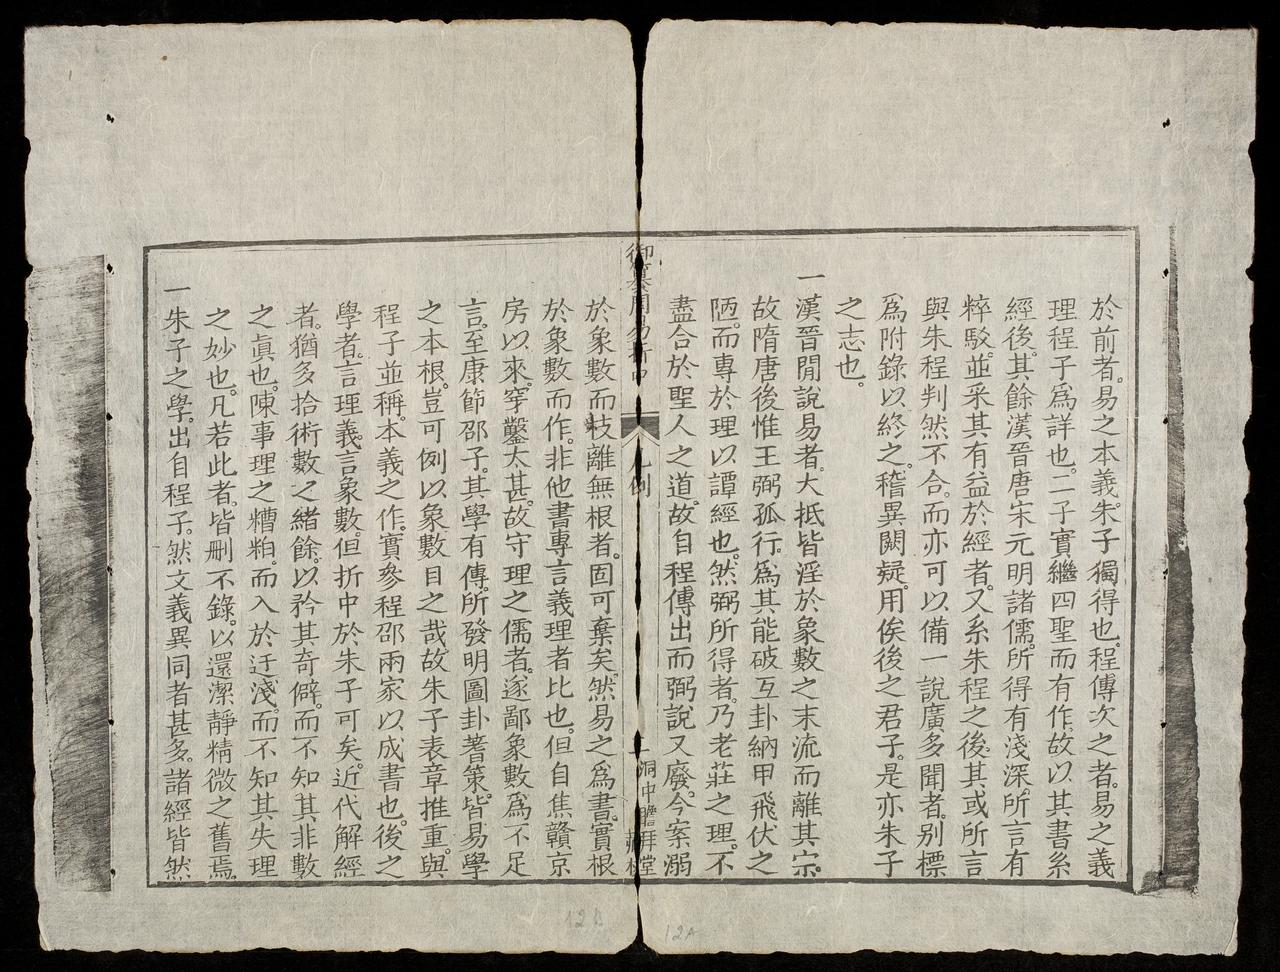 於前者。易之本義。朱子獨得也。程傳次之者。易之義
理程子爲詳也。二子實繼四聖而有作。故以其書系
經後。其餘漢晉唐宋元明諸儒。所得有淺深。所言有
粹駁。並采其有益於經者。又系朱程之後。其或所言
與朱程判然不合。而亦可以備一說廣多聞者。别標
爲附錄以終之。稽異闕疑。用俟後之君子。是亦朱子
之志也。
一漢晉閒說易者。大抵皆淫於象數之末流而離其宗。
故隋唐後惟王弼孤行。爲其能破互卦納甲飛伏之
陋。而專於理以譚經也。然弼所得者。乃老莊之理。不
盡合於聖人之道。故自程傳出而弼說又廢。今案溺
御纂周易折中 凡例 一 洞中瞻拜堂藏板
於象數而枝離無根者。固可棄矣。然易之爲書。實根
於象數而作。非他書專言義理者比也。但自焦贛京
房以來。穿鑿太甚。故守理之儒者。遂鄙象數爲不足
言。至康節邵子。其學有傳。所發明圖卦蓍策。皆易學
之本根。豈可例以象數目之哉。故朱子表章推重。與
程子並稱。本義之作。實參程邵兩家以成書也。後之
學者。言理義。言象數。但折中於朱子可矣。近代解經
者。猶多拾術數之緒餘。以矜其奇僻。而不知其非數
之眞也。陳事理之糟粕。而入於迂淺。而不知其失理
之妙也。凡若此者。皆删不錄。以還潔靜精微之舊焉。
一朱子之學。出自程子。然文義異同者甚多。諸經皆然
12B
12A